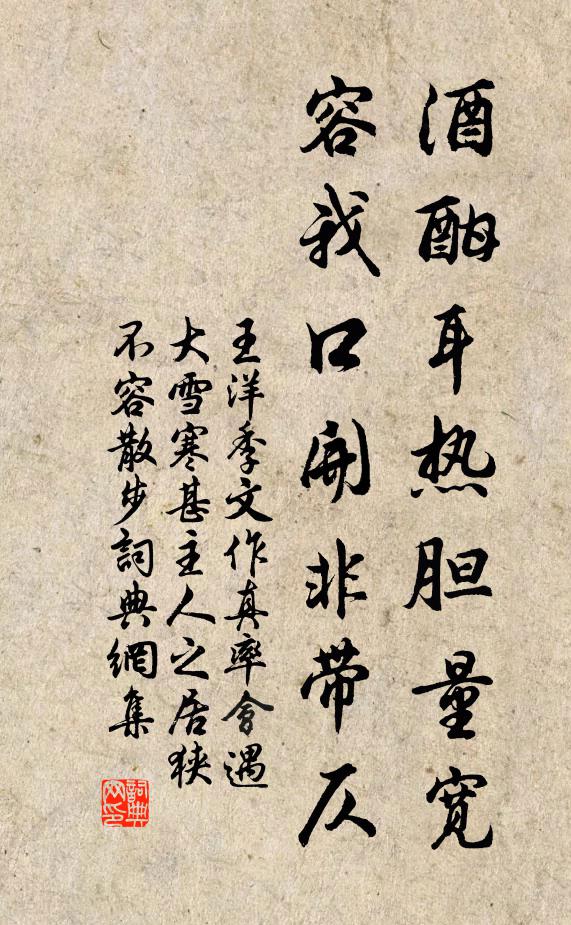 酒酣耳热胆量寛
容我口開非带仄
王洋季文作真率会遇
大雪寒甚主人之居狭
不容散步詞典網集
詞典
网印